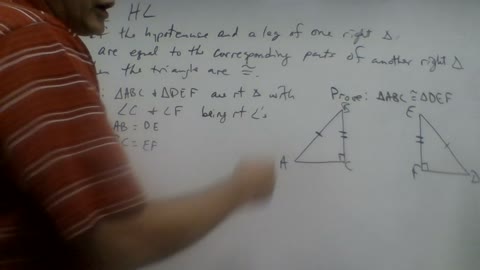 HL
the hypotenuse and a leg of one right Δ
are equal to the corresponding parts of another right Δ
the triangle are ≅.
: ΔABC + ΔDEF are rt Δ with Prove: ΔABC ≅ ΔDEF
∠C + ∠F being rt ∠'s
AB = DE
C = EF
B E
A C F D